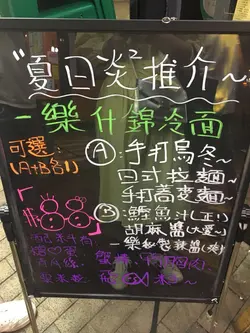 "夏"日炎²推介~
一樂什錦冷面
可選:
(A+B各1)
Ⓐ:手打烏冬~
日式拉麵~
手打蕎麥麵~
Ⓑ:鰹魚汁(正!)
胡麻醬(大愛~)
一樂秘製辣醬(爽)
配料有